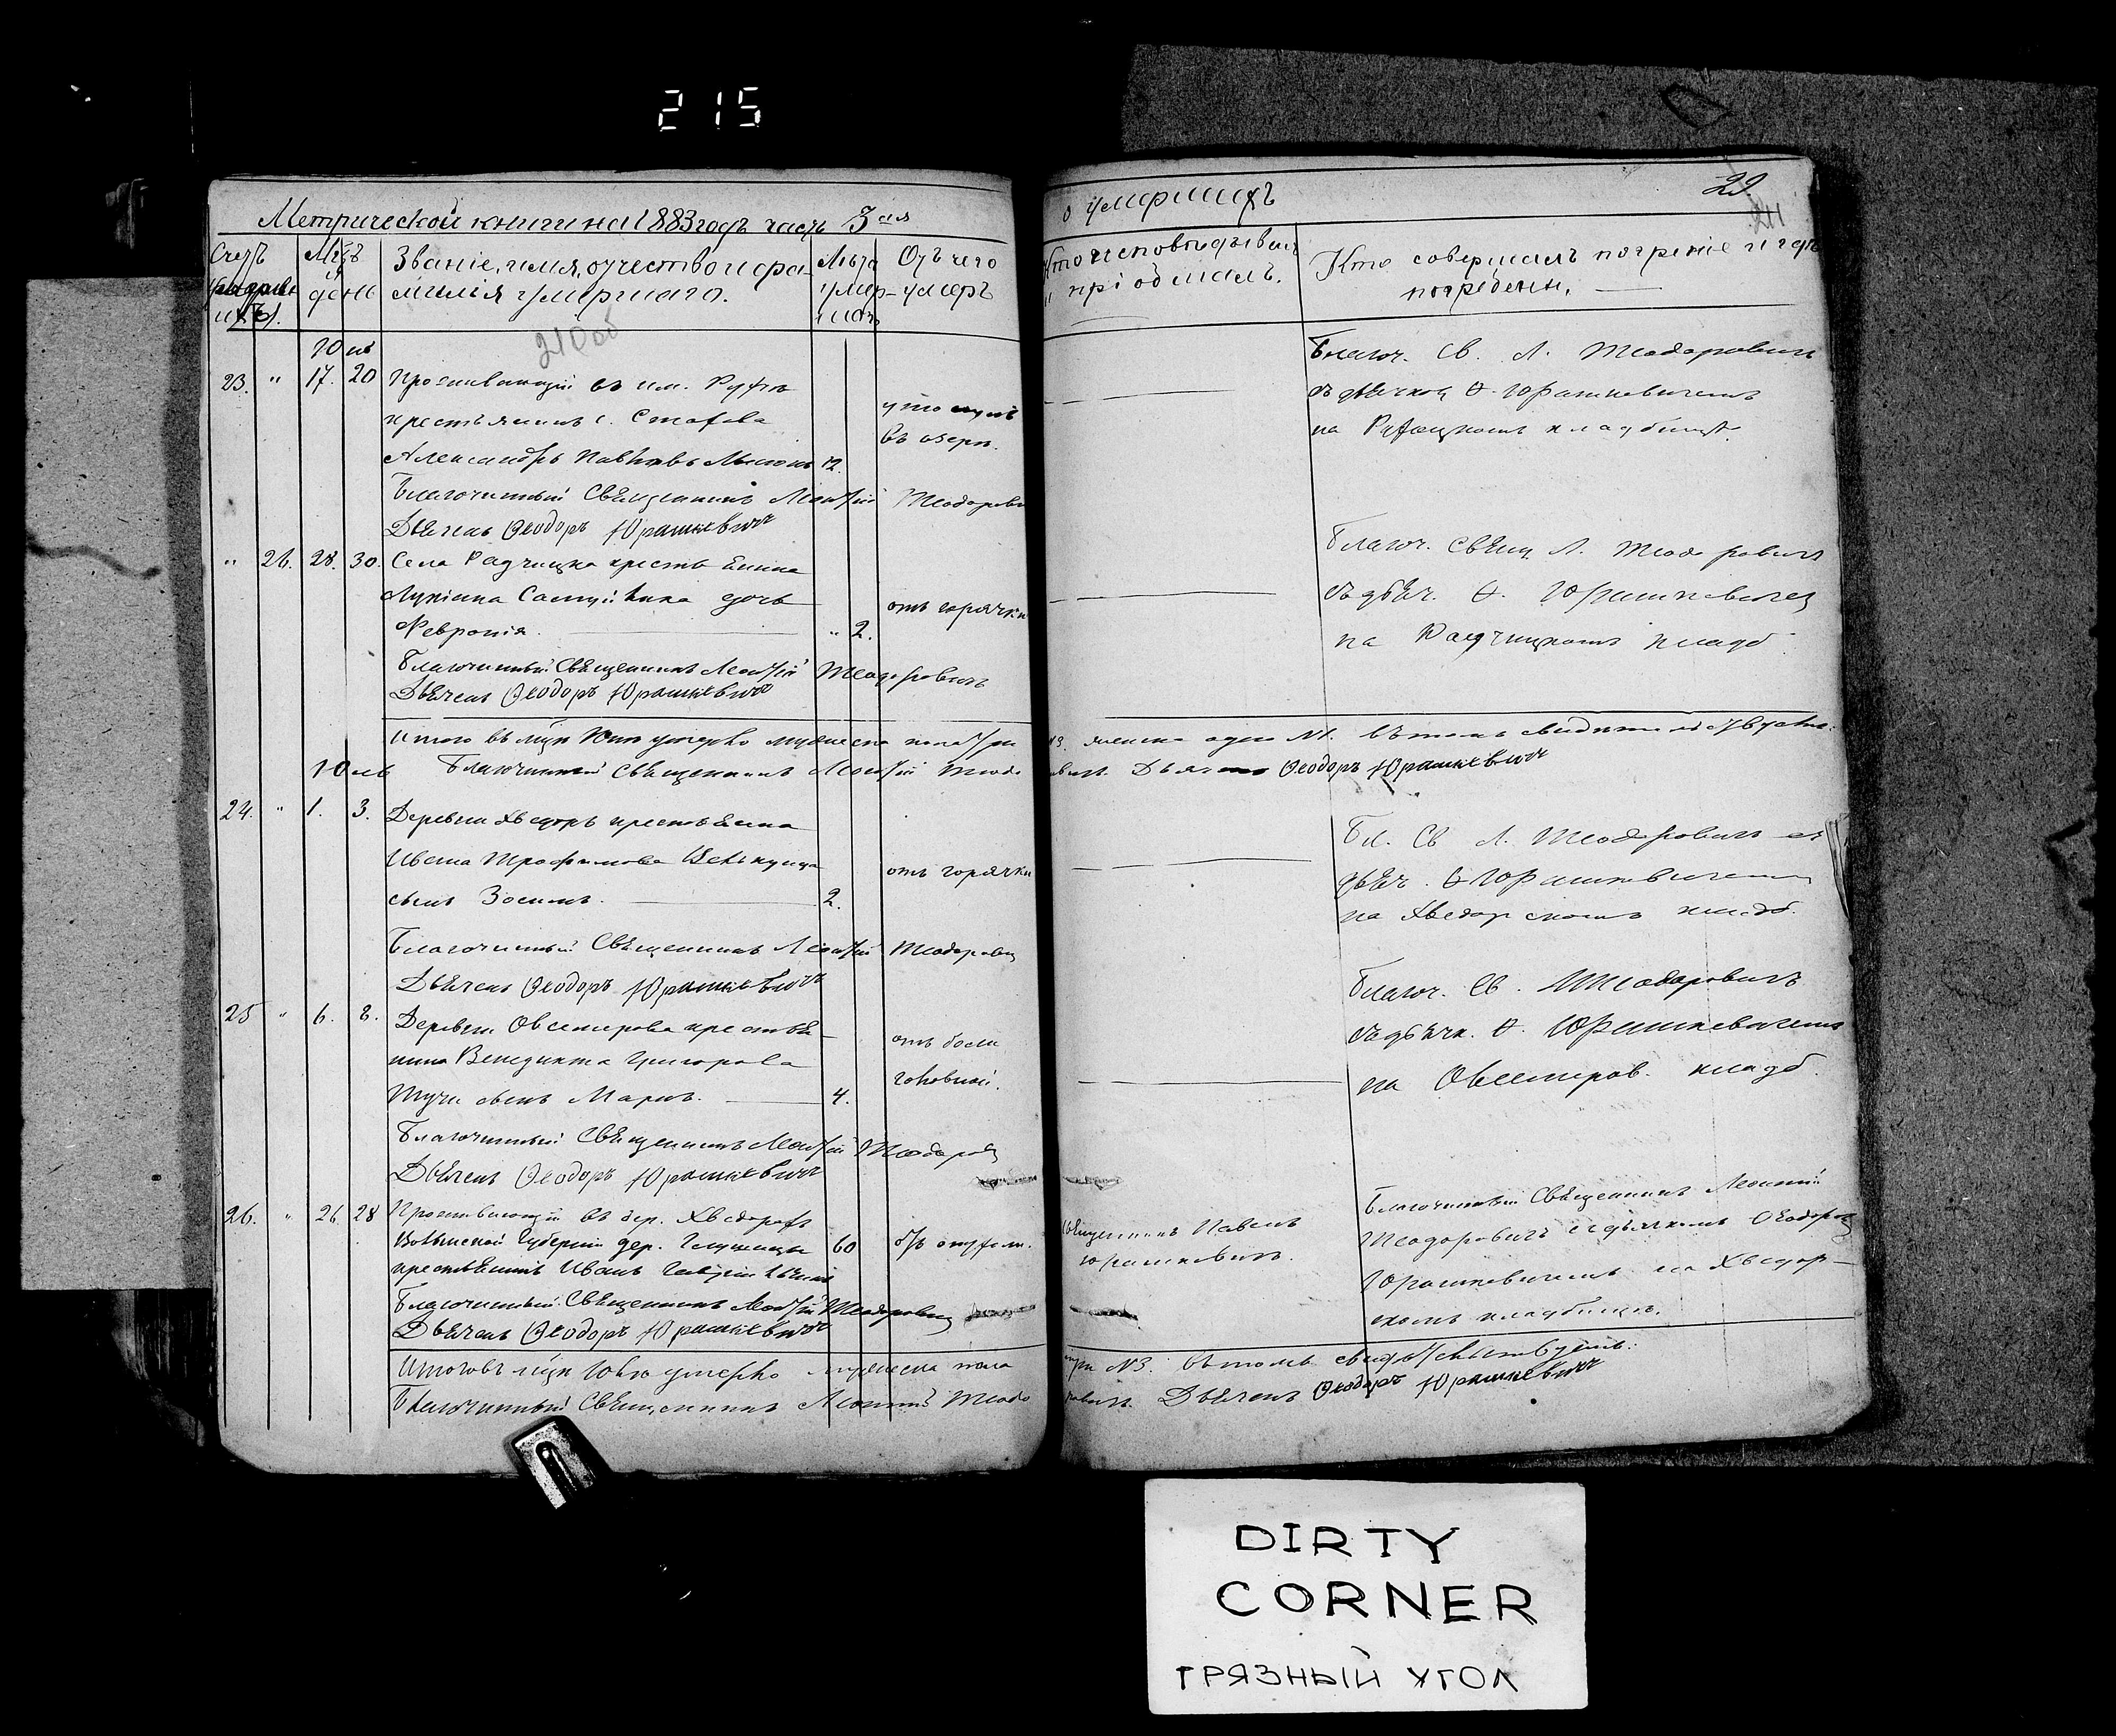 215
Метрической книги на 1883 годъ часть 3ая
о умершихъ
29.
211
Счетъ умерших
М-цъ и день
Званіе, имя, отчество и фамилія умершаго.
Лѣта умершаго
Отъ чего умеръ
Кто исповѣдывалъ и пріобщалъ.
Кто совершалъ погребеніе и гдѣ погребены.
210 об
23. " 17. 20 Проживающій въ им.
крестьянинъ с.
Александръ 12.
утонулъ
въ озерѣ.
Благоч. Св. Л. Теодоровичъ
съ дьячкомъ Ѳ. Юрашкевичемъ
на кладбищѣ.
Благочинный Священникъ Леонтій Теодорови
Дьячекъ Ѳеодоръ Юрашкевичъ
" 26. 28. 30. Села Радчицка крестьянина
дочь
Февронія. " 2.
отъ горячки
Благоч. Свящ. Л. Теодоровичъ
съ дьяч. Ѳ. Юрашкевичем
на Радчицкомъ кладб.
Благочинный Священникъ Леонтій Теодоровичъ
Дьячекъ Ѳеодоръ Юрашкевичъ
Итого въ м-цѣ умерло мужеска пола три №3. женска одна №1. Въ томъ
Благочинный Священникъ Леонтій Теодоровичъ. Дьячекъ Ѳеодоръ Юрашкевичъ
24. " 1. 3. Деревни Хведоръ крестьянина
Ивана Трофимова
сынъ Зосимъ. 2.
отъ горячки
Бл. Св. Л. Теодоровичъ съ
дьяч. Ѳ. Юрашкевичемъ
на Хведорскомъ кладб.
Благочинный Священникъ Леонтій Теодорович
Дьячекъ Ѳеодоръ Юрашкевичъ
25 " 6. 8. Деревни Овсемирова крестья-
нина Венедикта Григорова
сынъ Маркъ. 4.
отъ боли
головной.
Благоч. Св. Теодоровичъ
съ дьячк. Ѳ. Юрашкевичемъ
на Овсемиров. кладб.
Благочинный Священникъ Леонтій Теодоров
Дьячекъ Ѳеодоръ Юрашкевичъ
26. " 26. 28 Проживающій въ дер.
Волынской Губерніи дер.
крестьянинъ Иванъ 60
Священникъ Павелъ
Юрашкевичъ.
Благочинный Священникъ Леонтій
Теодоровичъ съ дьячкомъ Ѳеодоромъ
Юрашкевичемъ на Хведор-
скомъ кладбищѣ.
Благочинный Священникъ Леонтій Теодорович
Дьячекъ Ѳеодоръ Юрашкевичъ
Итого въ м-цѣ умерло мужеска пола три №3. Въ томъ свидѣтельствуемъ:
Благочинный Священникъ Леонтій Теодоровичъ. Дьячекъ Ѳеодоръ Юрашкевичъ
DIRTY
CORNER
ГРЯЗНЫЙ УГОЛ